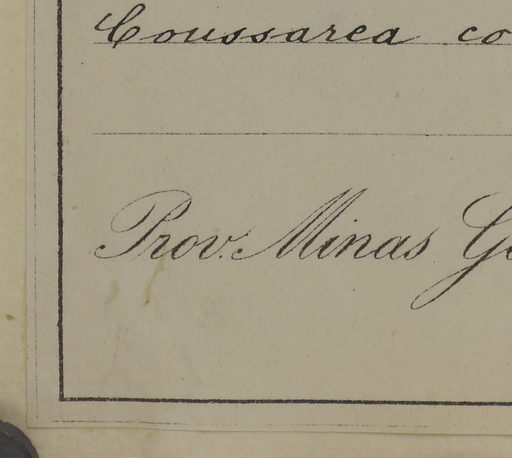 Coussarea co
Prov. Minas Ge